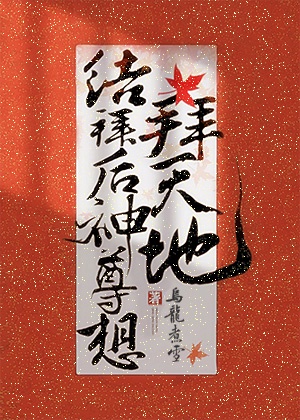 结拜后神尊想
拜天地
乌龙煮雪
著